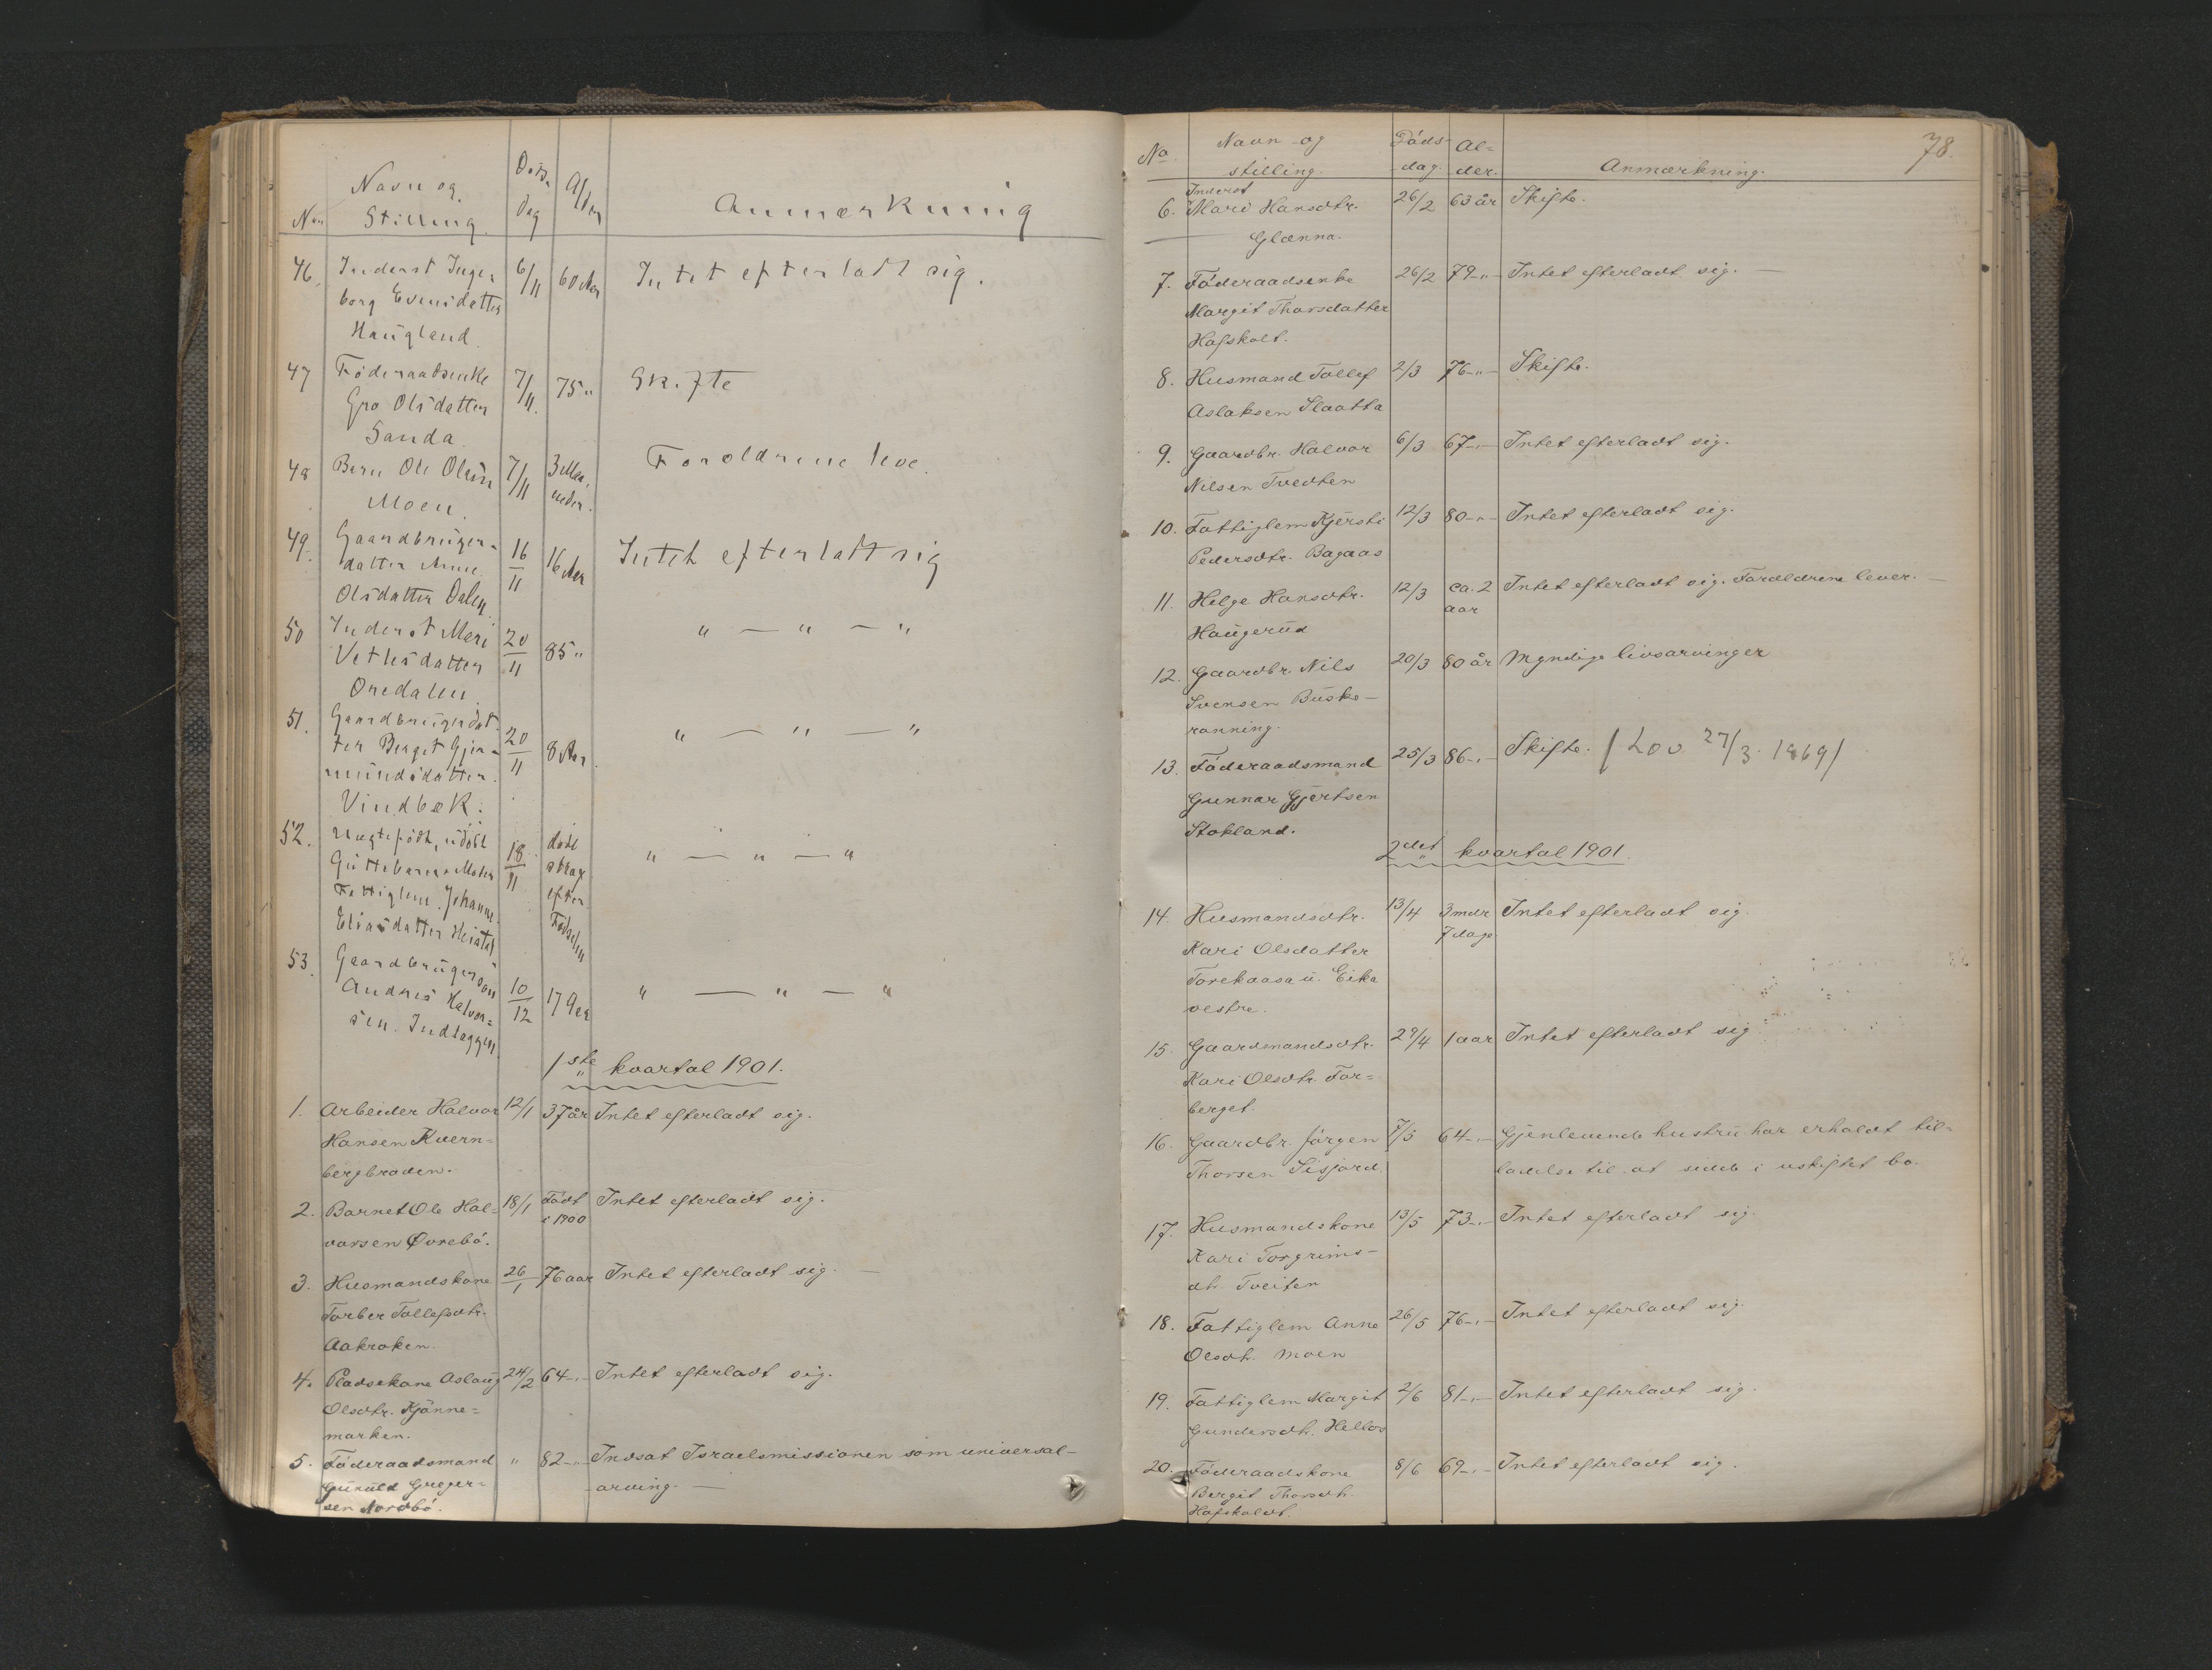 Non Navn og Stilling. Döds Dag Alder Anmærkning
46. Inderst Inge- 6/11 60 Aar Intet efterladt sig.
borg Evensdatter
Haugland.
47 Föderaadsenke 7/11. 75 " Skifte
Gro Olsdatter
Sanda.
48 Barn Ole Olsen 7/11 3 Maa- Foroldrene leve.
Moen. neder.
49. Gaardbruger- 16/11 16 Aar Intet efterladt sig
datter Anne
Olsdatter Dalen
50 Inderst Mari 20/11 85 " " — " — "
Vetlesdatter
Oredalen
51. Gaardbrugerdat- 20/11 8 Aar. " — " — "
ter Berget Gjer-
mundsdatter.
Vindbæk.
52. Uægtefödt, udöbt 18/11 döde " — " — "
Guttebarn. Moder strax
Fattiglem. Johanne efter
Eliasdatter Födselen
53. Gaardbrugersön 10/12 17 Aar " — " — "
Andres Halvor-
sen. Indlæggen
1ste kvartal 1901.
1. Arbeider Halvor 12/1 37 år Intet efterladt sig.
Hansen Kvern=
bergbraden.
2. Barnet Ole Hal- 18/1 Födt Intet efterladt sig.
vorsen Øvrebö. i 1900
3. Husmandskone 26/1 76 aar Intet efterladt sig. —
Torber Tollefsdtr.
Aakroken.
4. Pladsekone Aslaug 24/2 64 -"- Intet efterladt sig.
Olsdtr. Kjönne=
marken.
5. Föderaadsmand " 82 -"- Indsat Israelsmissionen som universal-
Gunuld Greger- arving. —
sen Nordbö.
78.
No. Navn og Döds- Al-
stilling. dag. der. Anmærkning.
Inderst
6. Mari Hansdtr. 26/2 63 år Skifte.
Glenna.
7. Föderaadsenke 26/2 79 -"- Intet efterladt sig. —
Margit Thorsdatter
Hafskolt.
8. Husmand Tollef 2/3 76 -"- Skifte.
Aslaksen Slaatta
9. Gaardbr. Halvor 6/3 67 -"- Intet efterladt sig.
Nilsen Tvedten
10. Fattiglem Kjersti 12/3 80 -"- Intet efterladt sig.
Pedersdtr. Bagaas
11. Helge Hansdtr. 12/3 ca. 2 Intet efterladt sig. Foreldrene lever. —
Haugerud aar
12. Gaardbr. Nils 20/3 80 år Myndige livsarvinger
Svensen Buske-
ranning.
13. Föderaadsmand 25/3 86 -"- Skifte. / Lov 27/3. 1869 /
Gunnar Gjertsen
Stokland.
2det kvartal 1901.
14. Husmandsdtr. 13/4 3 mdr Intet efterladt sig.
Kari Olsdatter 7 dage
Torekaasa u. Eika
vestre.
15. Gaardmandsdtr. 29/4 1 aar Intet efterladt sig
Kari Olsdtr. For=
berget.
16. Gaardbr. Jörgen 7/5 64 -"- Gjenlevende hustru har erholdt til=
Thorsen Sisjord ladelse til at sidde i uskiftet bo.
17. Husmandskone 13/5 73 -"- Intet efterladt sig.
Kari Torgrims-
dtr. Tveiten
18. Fattiglem Anne 26/5 76 -"- Intet efterladt sig.
Olsdtr. Moen
19. Fattiglem Margit 2/6 81 -"- Intet efterladt sig.
Gundersdtr. Hellos
20. Föderaadskone 8/6 69 -"- Intet efterladt sig.
Bergit Thorsdtr.
Hafskoldt.